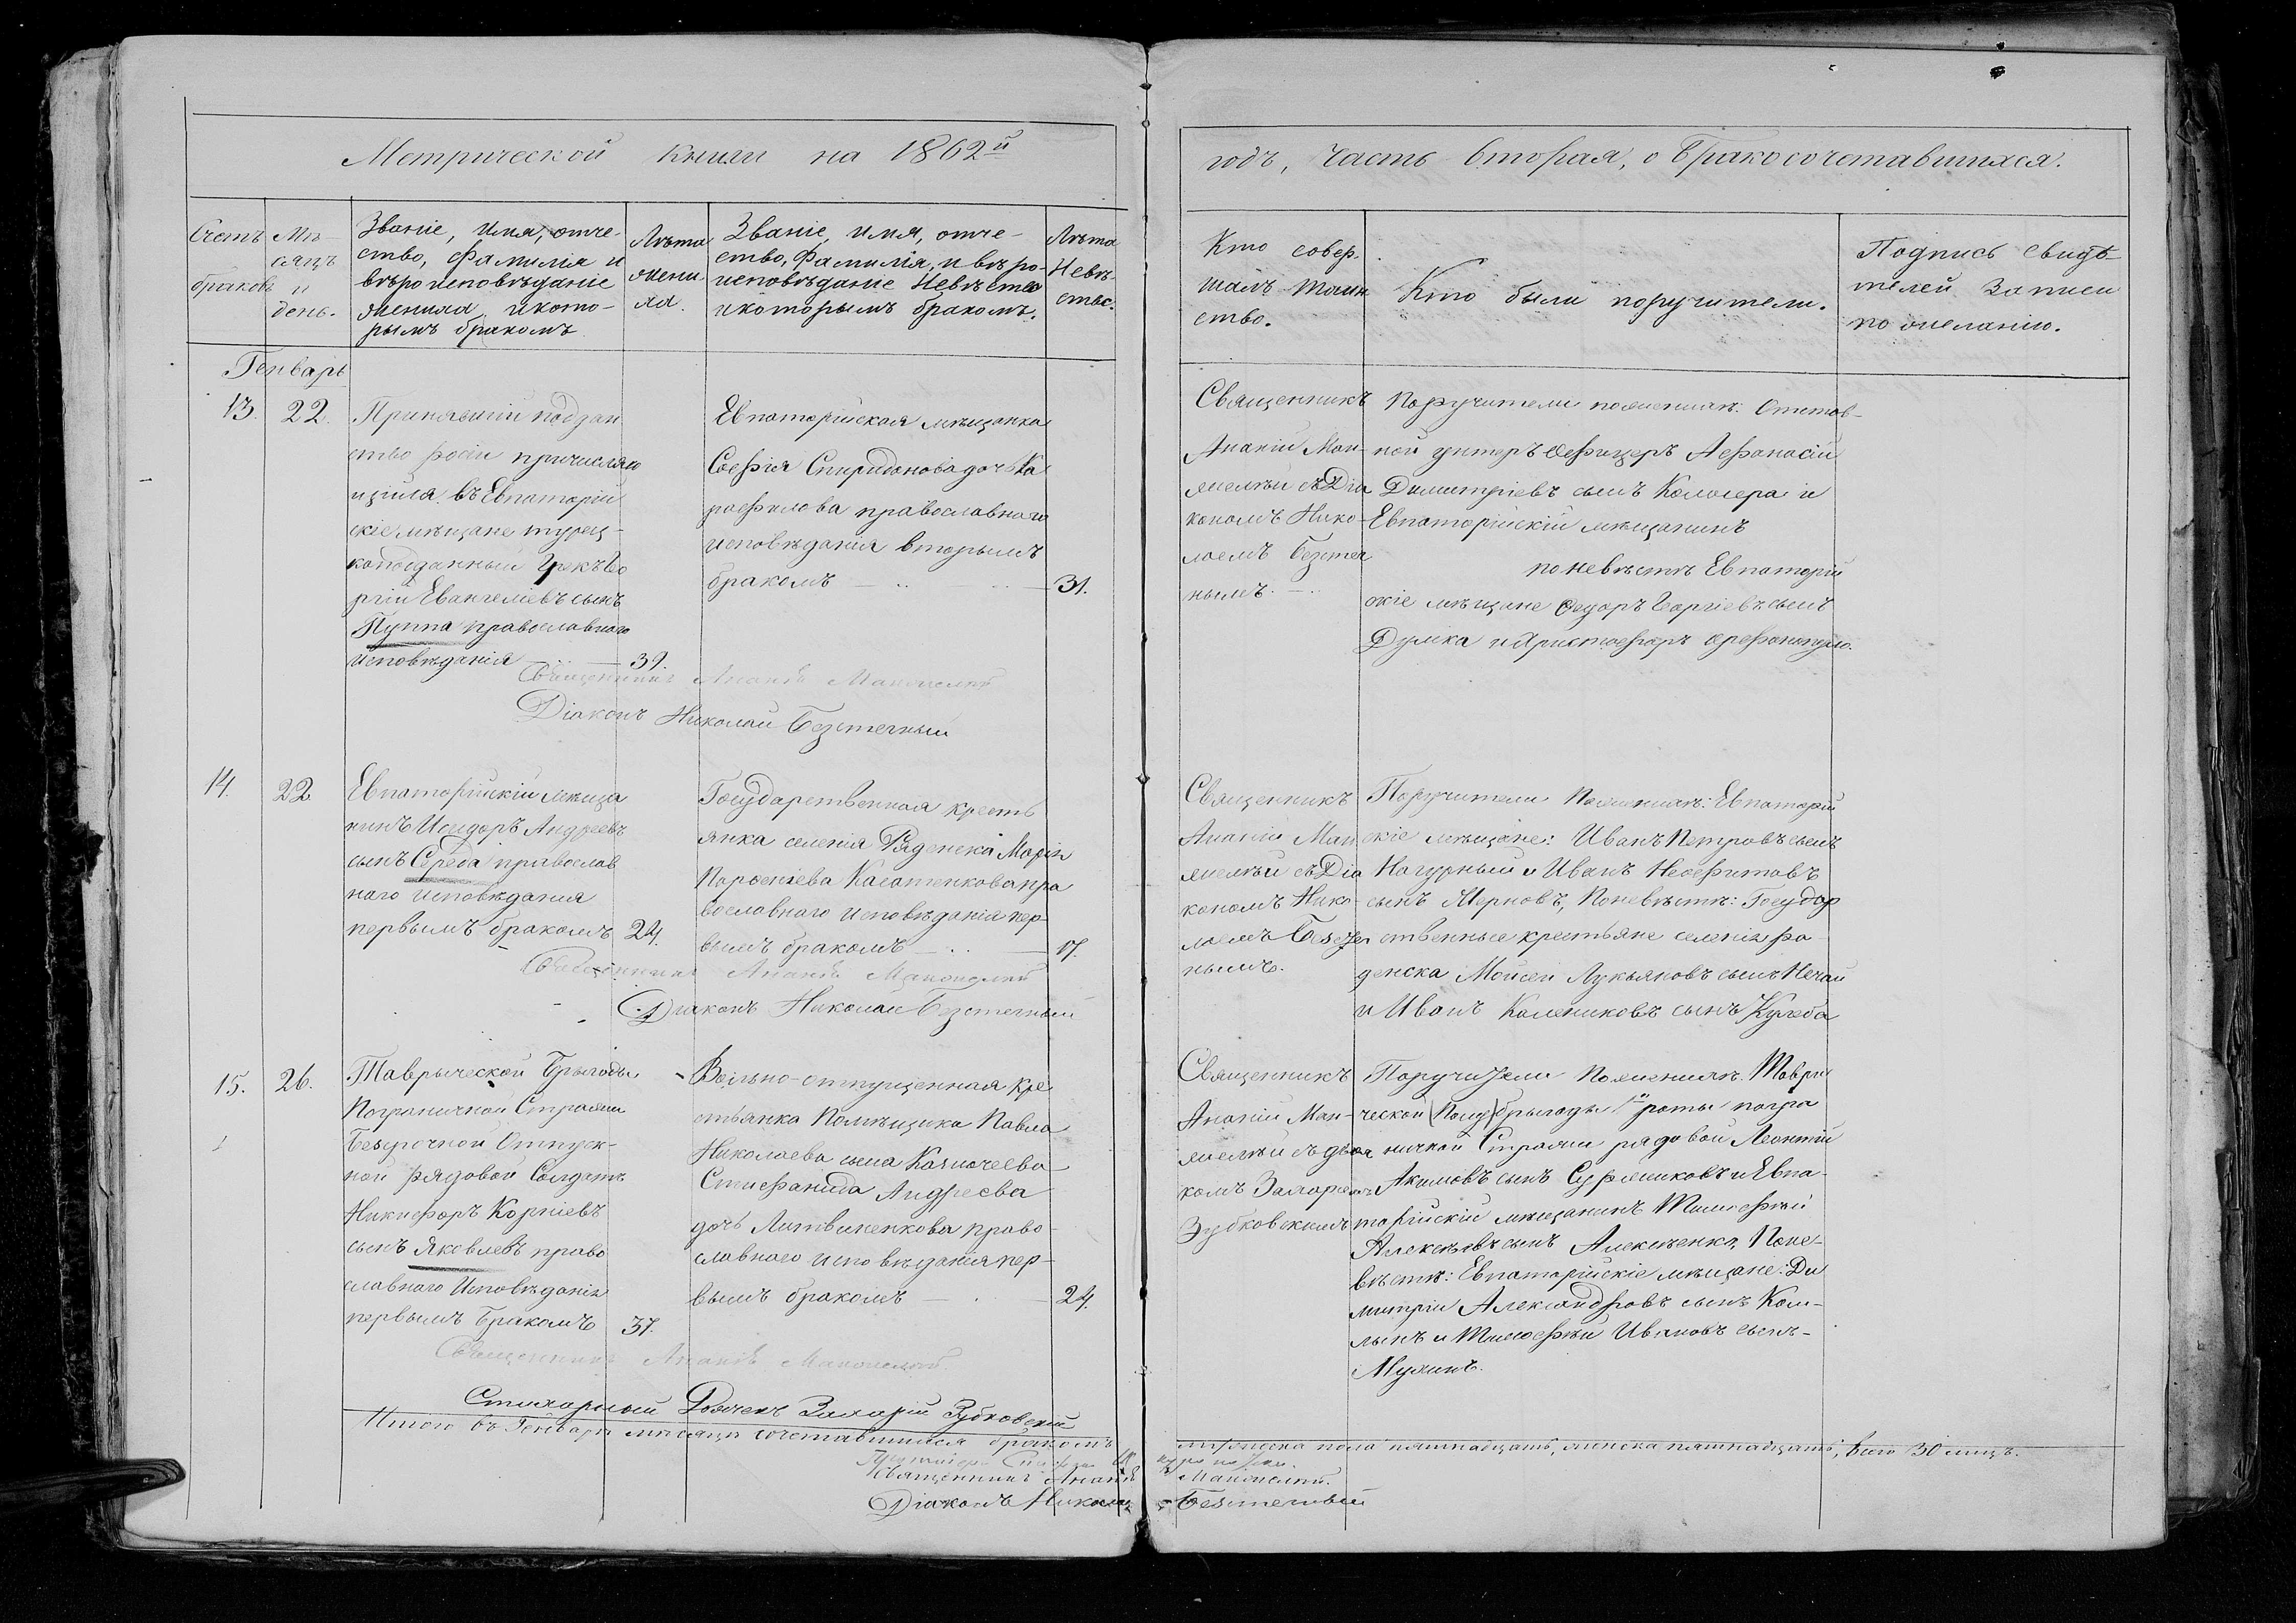 Метрической книги на 1862й
годъ, часть вторая, о бракосочетавшихся.
Счетъ браковъ
Мѣ-
сяцъ
и
день.
Званіе, имя, отче-
ство, фамилія и
вѣроисповѣданіе
жениха, и кото-
рымъ бракомъ
Лѣта
жени
ха.
Званіе, имя, отче-
ство, фамилія, и вѣро-
исповѣданіе невѣсты
и которымъ бракомъ.
Лѣта
Невѣ-
сты.
Кто совер.
шалъ таин
ство.
Кто были поручители.
Подпись свидѣ
телей записи
по желанію.
Генварь
13. 22.
Принявшій подзан
ство росіи
въ Евпаторій
скіе мѣщане турец-
коподданный Грекъ Ге
ргій Евангеліевъ сынъ
Пуппа православнаго
исповѣданія 39.
Евпаторійская мѣщанка
Софія Спиридонова дочь Ка
рафилова православнаго
исповѣданія вторымъ
бракомъ 31.
Священникъ
Ананій Ман-
желѣй съ Діа
кономъ Нико-
лаемъ Безтеч
нымъ.
Поручители по женихѣ: Отстав-
ной унтеръ Офицеръ Афанасій
Димитріевъ сынъ Калогера и
Евпаторійскій мѣщанинъ
по невѣстѣ Евпаторій
скіе мѣщане Федоръ Георгіевъ сынъ
Дулка и Христофоръ
Священникъ Ананій Манжелей
Діаконъ Николай Безтечный
14. 22.
Евпаторійскій мѣща
нинъ Исидоръ Андреевъ
сынъ Середа православ
наго исповѣданія
первымъ бракомъ 24.
Государственная кресть
янка селенія Раденска Марія
Парфеніева Касатенкова пра
вославнаго исповѣданія пер-
вымъ бракомъ 17.
Священникъ
Ананій Ман
желѣй съ Діа
кономъ Нико-
лаемъ Безтеч
нымъ.
Поручители по женихѣ: Евпаторій
скіе мѣщане: Иванъ Петровъ сынъ
Нагурный и Иванъ Неофитовъ
сынъ Черновъ, по невѣстѣ: Государ
ственные крестьяне селенія Ра
денска Мойсей Лукьяновъ сынъ Нечай
и Иванъ Калениковъ сынъ Кулеба
Священникъ Ананій Манжелей
Діаконъ Николай Безтечный
15. 26.
Таврической Бригады
Пограничной Стражи
Безсрочной Отпуск-
ной рядовой Солдатъ
Никифоръ Корніевъ
сынъ Яковлевъ право
славнаго Исповѣданія
первымъ бракомъ 37.
Вольно-отпущенная кре
стьянка помѣщика Павла
Николаева сына Казначеева
Стефанида Андреева
дочь Литвиненкова право-
славнаго исповѣданія пер-
вымъ бракомъ 24.
Священникъ
Ананій Ман-
желѣй съ дья
комъ Захаріем
Зубковскимъ
Поручители по женихѣ. Таври
ческой (Полу) бригады 1й роты погра
ничной Стражи рядовой Леонтій
Акимовъ сынъ и Евпа-
торійскій мѣщанинъ Тимофей
Алексѣевъ сынъ Алексѣенко, По не-
вѣстѣ: Евпаторійскіе мѣщане: Ди
митрій Александровъ сынъ
и Тимофей Ивановъ сынъ-
Священникъ Ананій Манжелей.
Стихарный Дьячекъ Захарій Зубковскій
Итого въ Генварѣ мѣсяцѣ сочетавшихся бракомъ мужеска пола пятнадцать, женска пятнадцать, всего 30 лицъ.
Священникъ Ананій Манжелей.
Діаконъ Николай Безтечный